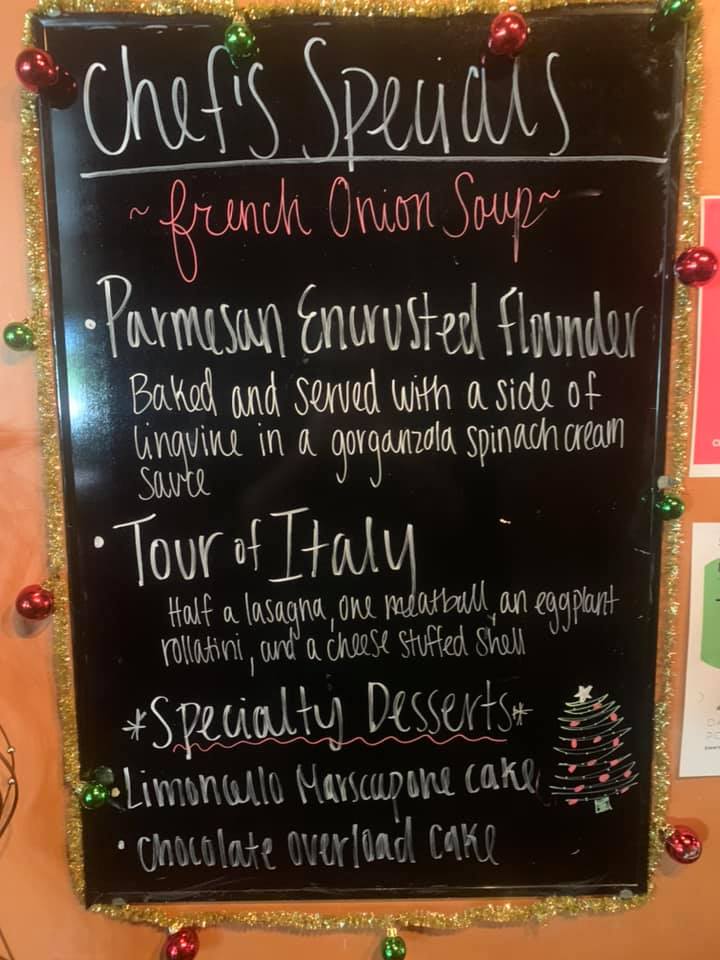 Chef's Specials
~ French Onion Soup ~
• Parmesan Encrusted Flounder
Baked and served with a side of
linguine in a gorganzola spinach cream
sauce
• Tour of Italy
Half a lasagna, one meatball, an eggplant
rollatini, and a cheese stuffed shell
*Specialty Desserts*
• Limoncello Marscapone cake
• Chocolate overload cake